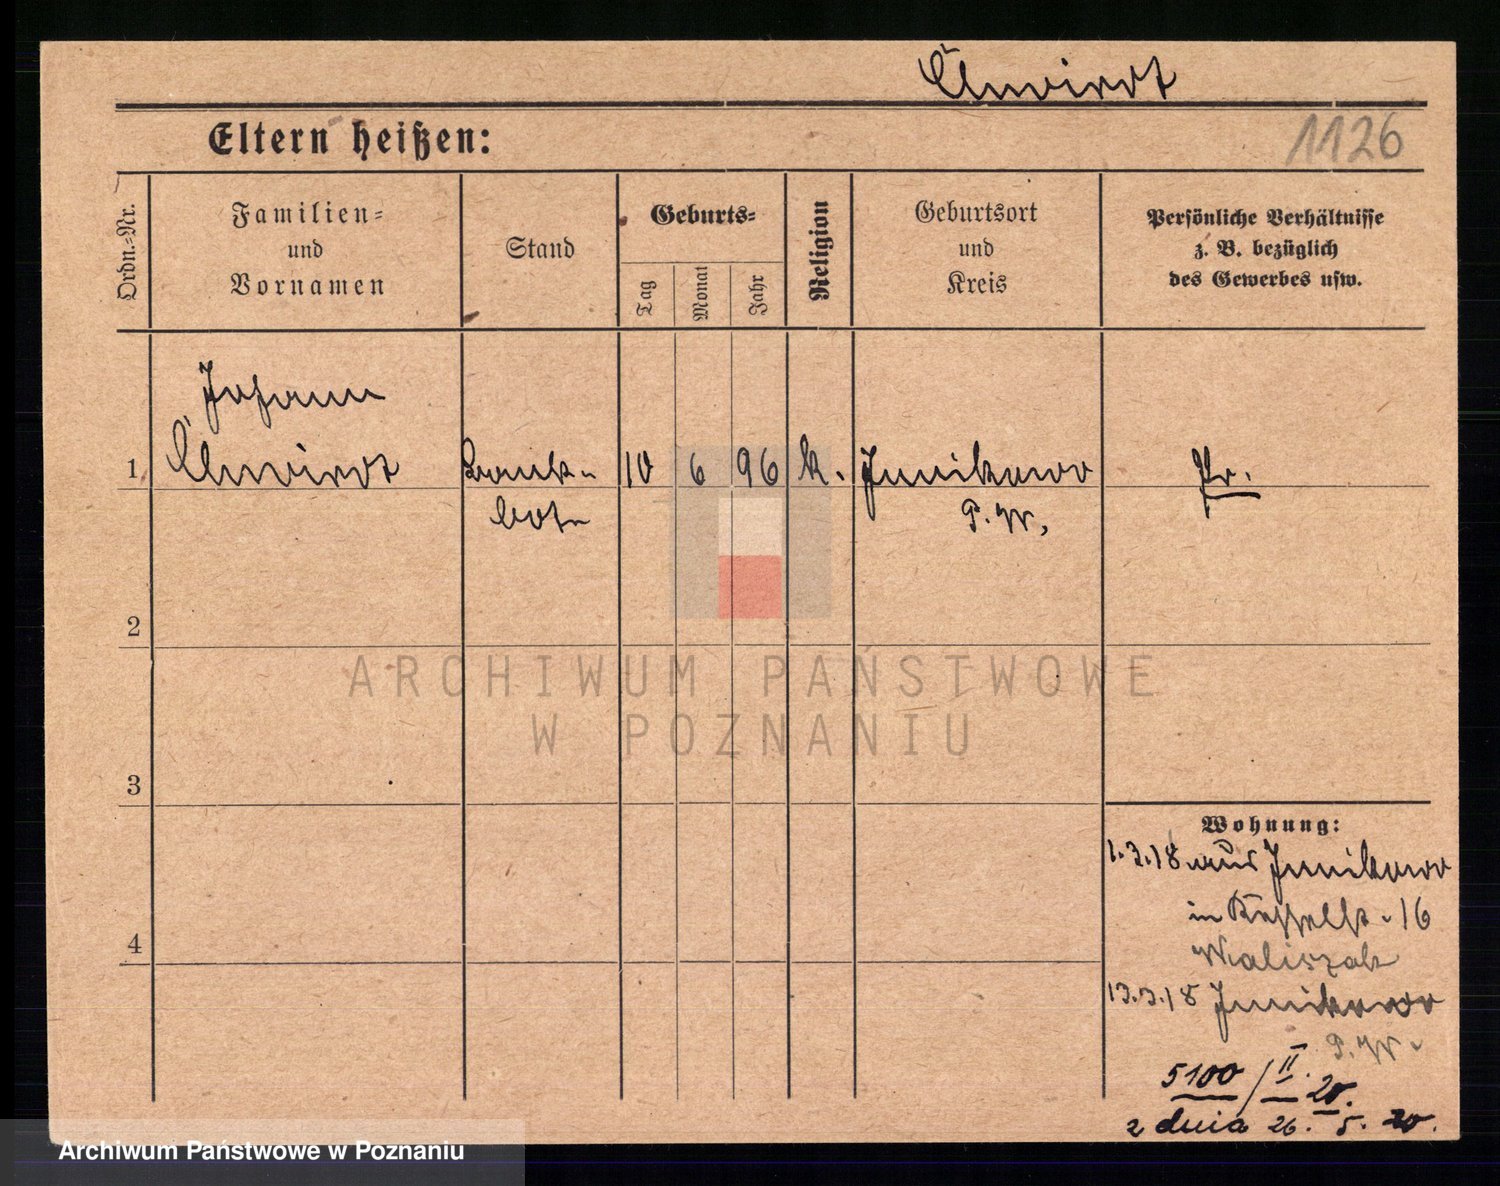 1126
Eltern heißen:
Ordn.-Nr.
Familien-
und
Vornamen
Stand
Geburts-
Tag
Monat
Jahr
Religion
Geburtsort
und
Kreis
Persönliche Verhältnisse
z. B. bezüglich
des Gewerbes usw.
Johann
1 10 6 96 k. Junikowo Pr.
bote P. W.
2
3
4
Wohnung:
1.3.18 aus Junikowo
in 16
Waliszak
13.3.18 Junikowo
P. W.
5100/II. 20.
z dnia 26. 5. 20.
ARCHIWUM PAŃSTWOWE
W POZNANIU
Archiwum Państwowe w Poznaniu